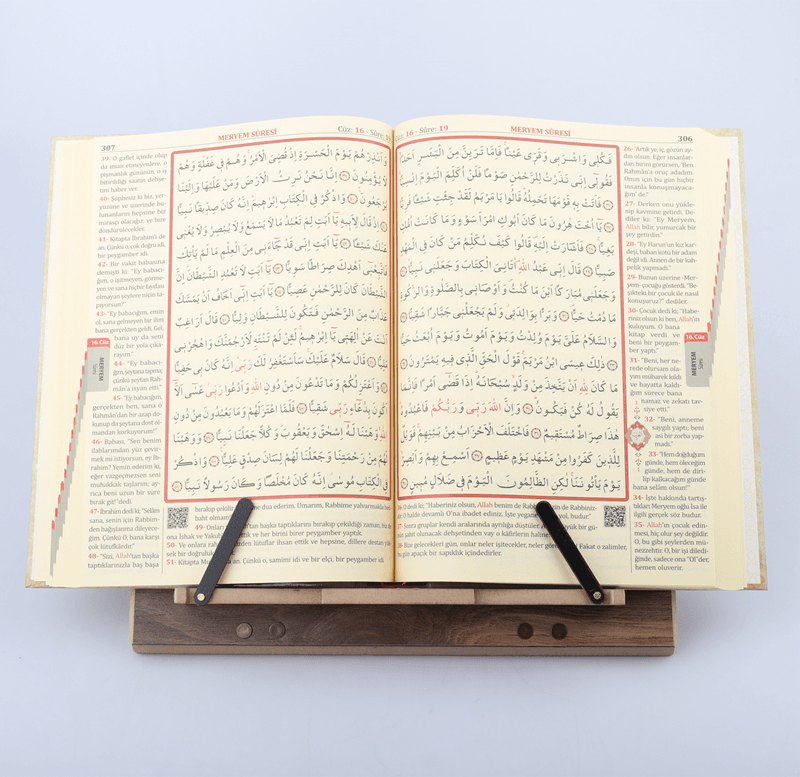 306
MERYEM SÛRESİ
Cüz: 16 - Sûre: 19
فَكُلِى وَاشْرَبِى وَقَرِّى عَيْنًا فَاِمَّا تَرَيِنَّ مِنَ الْبَشَرِ اَحَدًا
فَقُولِى اِنِّى نَذَرْتُ لِلرَّحْمٰنِ صَوْمًا فَلَنْ اُكَلِّمَ الْيَوْمَ اِنْسِيًّا
فَاَتَتْ بِهِ قَوْمَهَا تَحْمِلُهُ قَالُوا يَا مَرْيَمُ لَقَدْ جِئْتِ شَيْئًا فَرِيًّا
يَا اُخْتَ هٰرُونَ مَا كَانَ اَبُوكِ امْرَاَ سَوْءٍ وَمَا كَانَتْ اُمُّكِ
بَغِيًّا فَاَشَارَتْ اِلَيْهِ قَالُوا كَيْفَ نُكَلِّمُ مَنْ كَانَ فِى الْمَهْدِ
صَبِيًّا قَالَ اِنِّى عَبْدُ اللّٰهِ اٰتَانِىَ الْكِتَابَ وَجَعَلَنِى نَبِيًّا
وَجَعَلَنِى مُبَارَكًا اَيْنَ مَا كُنْتُ وَاَوْصَانِى بِالصَّلٰوةِ وَالزَّكٰوةِ
مَا دُمْتُ حَيًّا وَبَرًّا بِوَالِدَتِى وَلَمْ يَجْعَلْنِى جَبَّارًا شَقِيًّا
وَالسَّلَامُ عَلَىَّ يَوْمَ وُلِدْتُ وَيَوْمَ اَمُوتُ وَيَوْمَ اُبْعَثُ حَيًّا
ذٰلِكَ عِيسَى ابْنُ مَرْيَمَ قَوْلَ الْحَقِّ الَّذِى فِيهِ يَمْتَرُونَ
مَا كَانَ لِلّٰهِ اَنْ يَتَّخِذَ مِنْ وَلَدٍ سُبْحَانَهُ اِذَا قَضٰى اَمْرًا فَاِنَّمَا
يَقُولُ لَهُ كُنْ فَيَكُونُ وَاِنَّ اللّٰهَ رَبِّى وَرَبُّكُمْ فَاعْبُدُوهُ
هٰذَا صِرَاطٌ مُسْتَقِيمٌ فَاخْتَلَفَ الْاَحْزَابُ مِنْ بَيْنِهِمْ فَوَيْلٌ
لِلَّذِينَ كَفَرُوا مِنْ مَشْهَدِ يَوْمٍ عَظِيمٍ اَسْمِعْ بِهِمْ وَاَبْصِرْ
يَوْمَ يَأْتُونَنَا لٰكِنِ الظَّالِمُونَ الْيَوْمَ فِى ضَلَالٍ مُبِينٍ
26- "Artık ye, iç, gözün ay-
dın olsun. Eğer insanlar-
dan birini görürsen, 'Ben
Rahmân'a oruç adadım.
Onun için bu gün hiçbir
insanla konuşmayacağ-
ım' de."
27- Derken onu yükle-
nip kavmine getirdi. De-
diler ki: "Ey Meryem,
Allah bilir, yumurcak bir
şey getirdin."
28- "Ey Harun'un kız kar-
deşi, baban kötü bir adam
değil idi. Annen de bir kah-
pelik yapmadı."
29- Bunun üzerine-Mer-
yem- çocuğu gösterdi. "Be-
şikteki bir çocuk ile nasıl
konuşuruz?" dediler.
30- Çocuk dedi ki; "Habe-
riniz olsun ki ben, Allah'ın
kuluyum. O bana
kitap verdi ve
beni bir peygam-
ber yaptı."
31- "Beni, her ne-
rede olursam ola-
yım mübarek kıldı
ve hayatta kaldı-
ğım sürece bana
namaz ve zekatı tav-
siye etti."
32- "Beni, anneme
saygılı yaptı; beni
ani bir zorba yap-
madı."
33- "Hem doğduğum
günde, hem öleceğim
günde, hem de diri-
lip kalkacağım günde
bana selâm olsun!"
34- İşte hakkında tartış-
tıkları Meryem oğlu İsa ile
ilgili gerçek söz budur.
35- Allah'ın çocuk edin-
mesi, hiç olur şey değildir.
O, bu gibi şeylerden mü-
nezzehtir. O, bir işi diledi-
ğinde, sadece ona "Ol"der,
hemen oluverir.
16.Cüz
MERYEM
Sûresi
dedi ki: "Haberiniz olsun, Allah benim de Rabbim, sizin de Rabbiniz-
dir O halde devamlı O'na ibadet ediniz. İşte yegane yol, budur."
37- Sonra gruplar kendi aralarında ayrılığa düştüler. büyük bir gü-
nün şahit olunacak dehşetinden vay o kâfirlerin haline
38- Bize gelecekleri gün, onlar neler işitecekler, neler Fakat o zalimler,
gün apaçık bir sapıklık içindedirler.
Cüz: 16 - Sûre:
MERYEM SÛRESİ
307
وَاَنْذِرْهُمْ يَوْمَ الْحَسْرَةِ اِذْ قُضِىَ الْاَمْرُ وَهُمْ فِى غَفْلَةٍ وَهُمْ
لَا يُؤْمِنُونَ اِنَّا نَحْنُ نَرِثُ الْاَرْضَ وَمَنْ عَلَيْهَا وَاِلَيْنَا
يُرْجَعُونَ وَاذْكُرْ فِى الْكِتَابِ اِبْرٰهِيمَ اِنَّهُ كَانَ صِدِّيقًا نَبِيًّا
اِذْ قَالَ لِاَبِيهِ يَا اَبَتِ لِمَ تَعْبُدُ مَا لَا يَسْمَعُ وَلَا يُبْصِرُ وَلَا يُغْنِى
عَنْكَ شَيْئًا يَا اَبَتِ اِنِّى قَدْ جَاءَنِى مِنَ الْعِلْمِ مَا لَمْ يَأْتِكَ
فَاتَّبِعْنِى اَهْدِكَ صِرَاطًا سَوِيًّا يَا اَبَتِ لَا تَعْبُدِ الشَّيْطَانَ اِنَّ
الشَّيْطَانَ كَانَ لِلرَّحْمٰنِ عَصِيًّا يَا اَبَتِ اِنِّى اَخَافُ اَنْ يَمَسَّكَ
عَذَابٌ مِنَ الرَّحْمٰنِ فَتَكُونَ لِلشَّيْطَانِ وَلِيًّا قَالَ اَرَاغِبٌ
اَنْتَ عَنْ اٰلِهَتِى يَا اِبْرٰهِيمُ لَئِنْ لَمْ تَنْتَهِ لَاَرْجُمَنَّكَ وَاهْجُرْنِى
مَلِيًّا قَالَ سَلَامٌ عَلَيْكَ سَاَسْتَغْفِرُ لَكَ رَبِّى اِنَّهُ كَانَ بِى حَفِيًّا
وَاَعْتَزِلُكُمْ وَمَا تَدْعُونَ مِنْ دُونِ اللّٰهِ وَاَدْعُوا رَبِّى عَسٰى اَلَّا
اَكُونَ بِدُعَاءِ رَبِّى شَقِيًّا فَلَمَّا اعْتَزَلَهُمْ وَمَا يَعْبُدُونَ مِنْ دُونِ
اللّٰهِ وَهَبْنَا لَهُ اِسْحٰقَ وَيَعْقُوبَ وَكُلًّا جَعَلْنَا نَبِيًّا وَوَهَبْنَا
لَهُمْ مِنْ رَحْمَتِنَا وَجَعَلْنَا لَهُمْ لِسَانَ صِدْقٍ عَلِيًّا وَاذْكُرْ
فِى الْكِتَابِ مُوسٰى اِنَّهُ كَانَ مُخْلَصًا وَكَانَ رَسُولًا نَبِيًّا
39- O gaflet içinde olup
da iman etmeyenlere, o
pişmanlık gününün, o iş
bitirildiği saatin dehşe-
tini haber ver.
40- Şüphesiz ki biz, yer-
yüzüne ve üzerinde bu-
lunanların hepsine biz
mirasçı olacağız; ve bize
döndürülecekler.
41- Kitapta İbrahim'i de
an. Çünkü o, çok doğru idi,
bir peygamber idi.
42- Bir vakit babasına
demişti ki: "Ey babacı-
ğım, o işitmeyen, görme-
yen ve sana hiçbir faydası
olmayan şeylere niçin ta-
pıyorsun?"
43- "Ey babacığım, emin
ol, sana gelmeyen bir ilim
bana gerçekten geldi. Gel,
bana uy da seni
düz bir yola çıka-
rayım."
44- "Ey babacı-
ğım, şeytana tapma;
çünkü şeytan Rah-
mân'a isyan etti."
45- "Ey babacığım,
gerçekten ben, sana o
Rahmân'dan bir azap doku-
nup da şeytana dost ol-
mandan korkuyorum!"
46- Babası, "Sen benim
ilahlarımdan yüz çevir-
mek mi istiyorsun, ey İb-
rahim? Yemin ederim ki,
eğer vazgeçmezsen seni
muhakkak taşlarım; ay-
rıca beni uzun bir süre
bırak git!"dedi.
47- İbrahim dedi ki; "Selâm
sana, senin için Rabbim-
den bağışlanma dileyece-
ğim. Çünkü O, bana karşı
çok lütufkârdır."
48- "Sizi, Allah'tan başka
taptıklarınızla baş başa
16.Cüz
MERYEM
Sûresi
bırakıp çekiliyor dua ederim. Umarım, Rabbime yalvarmakla
baht olmam."
49- Onları taptıklarını bırakıp çekildiği zaman, biz de
ona İshak ve Yakub'u ettik ve her birini birer peygamber yaptık.
50- Ve onlara rahmetimizden lütuflar ihsan ettik ve hepsine, dillere destan yük-
sek bir doğruluk
51- Kitapta Musa'yı da an. Çünkü o, samimi idi ve bir elçi, bir peygamber idi